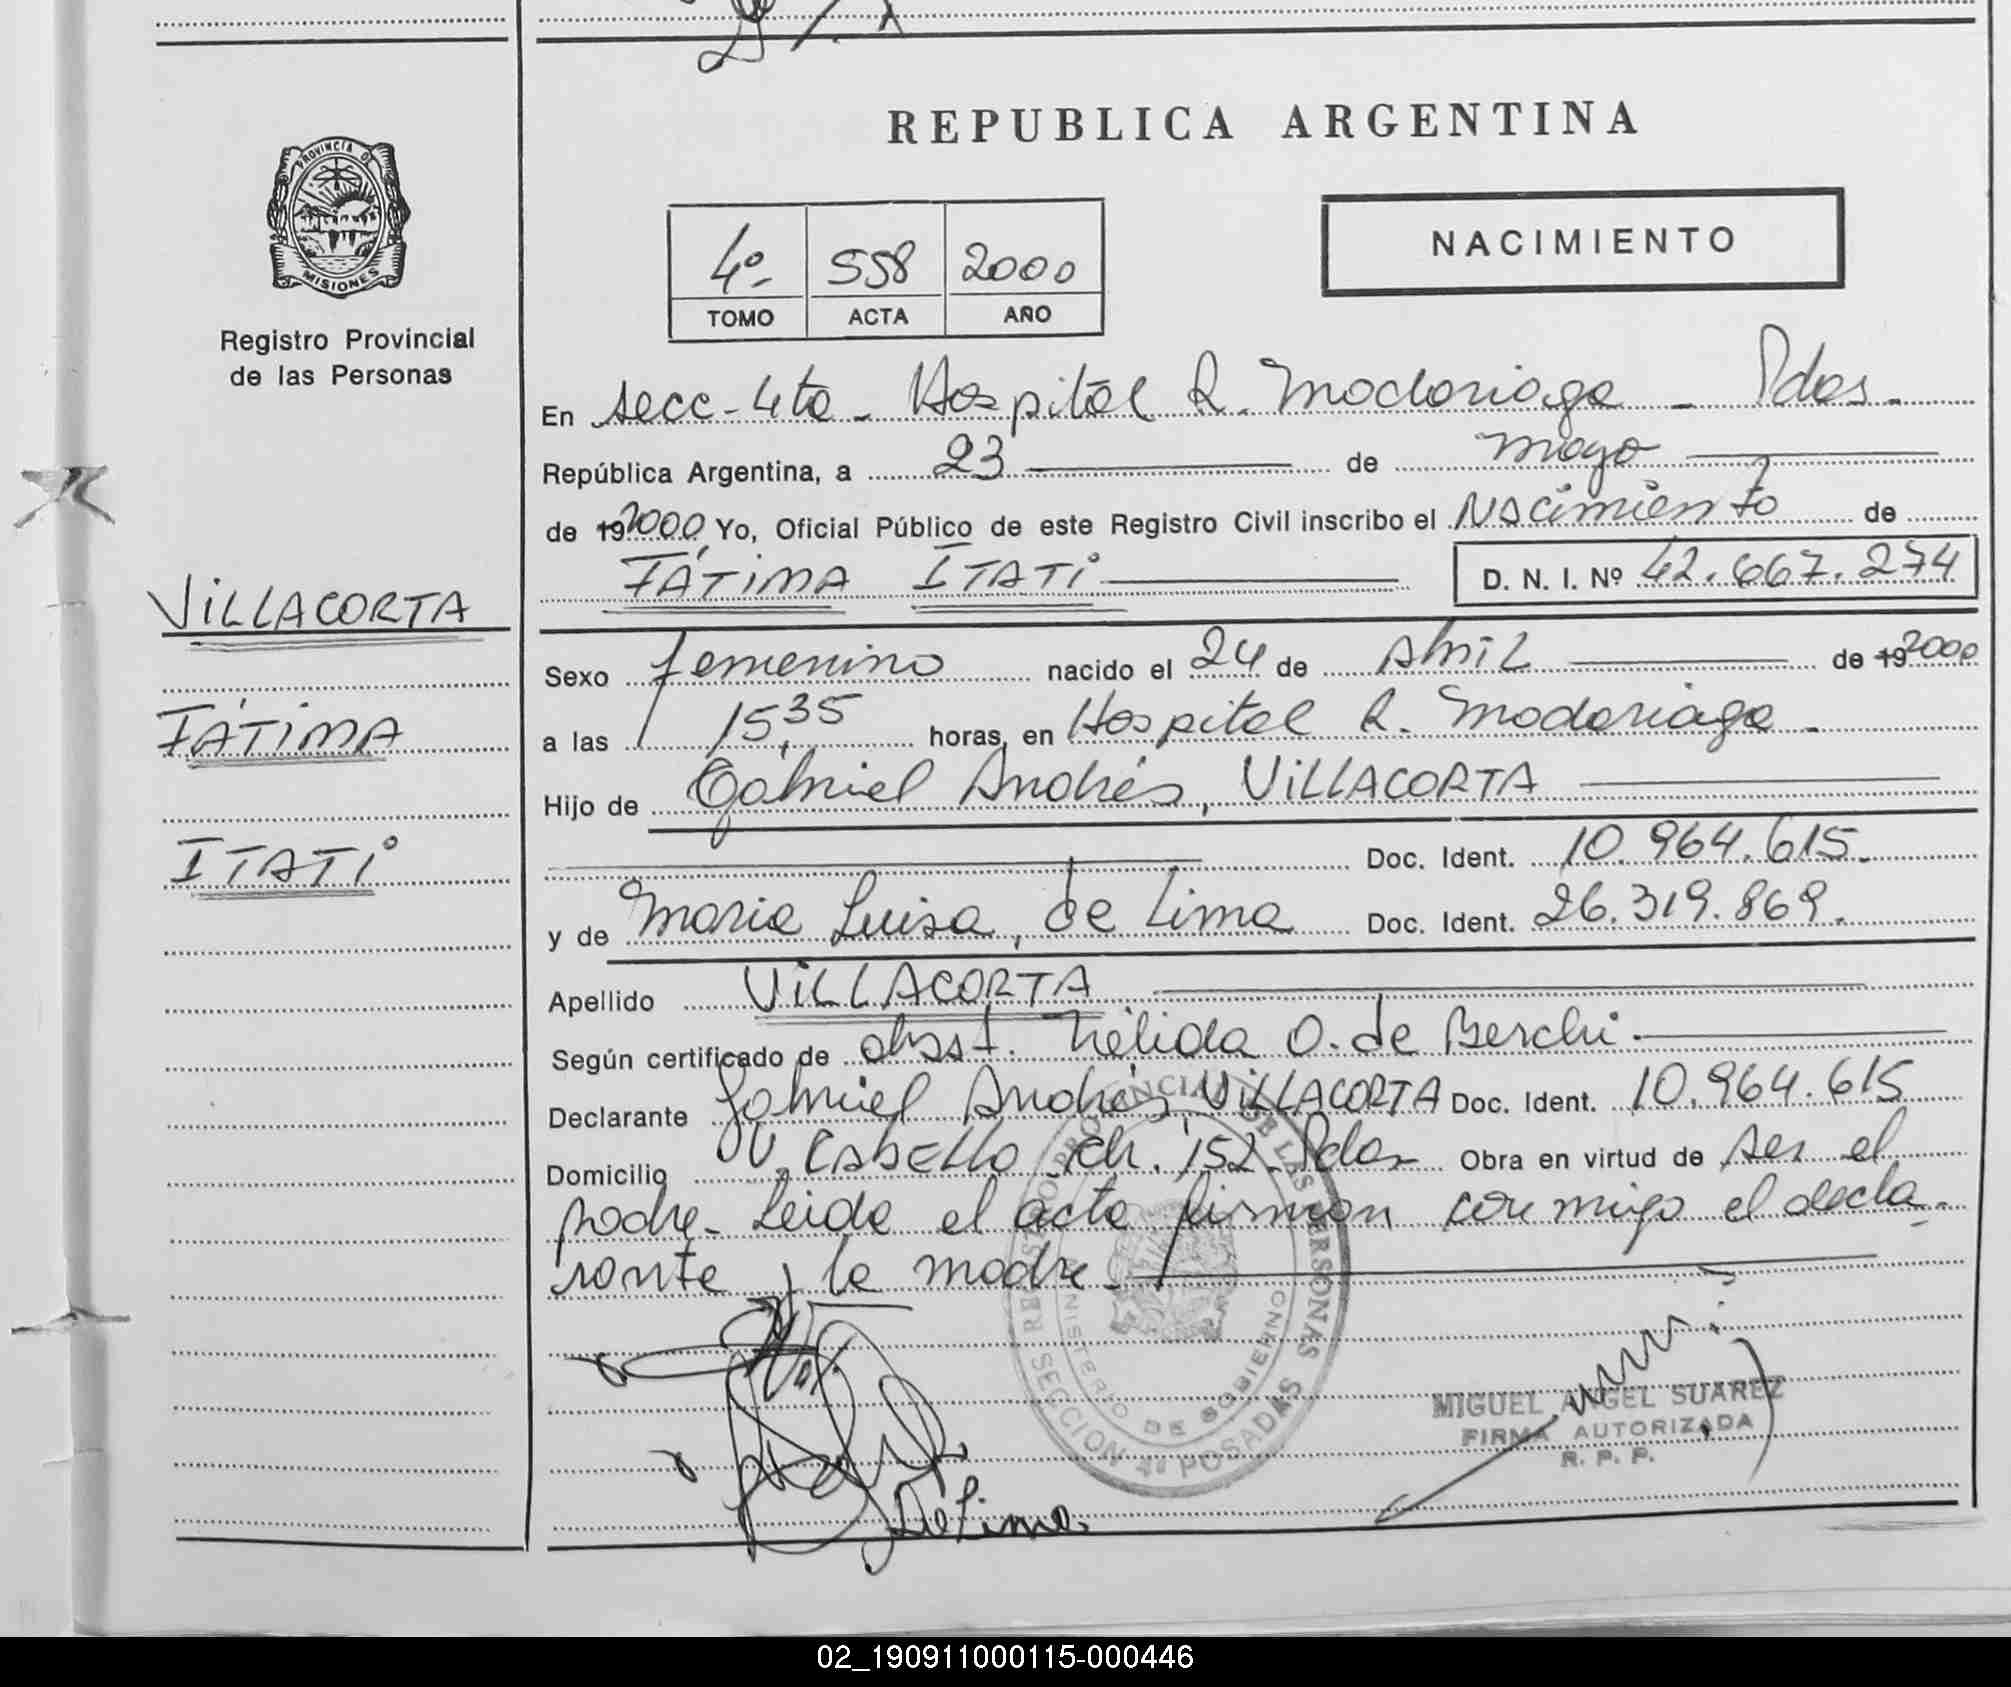 REPUBLICA ARGENTINA
PROVINCIA DE
MISIONES
Registro Provincial
de las Personas
4º- 558 2000
TOMO ACTA AÑO
NACIMIENTO
En secc-4ta- Hospital R. Madariaga - Pdas.
República Argentina, a 23 de mayo
de 192000, Yo, Oficial Público de este Registro Civil inscribo el Nacimiento de
FÁTIMA ITATÍ D. N. I. Nº 42.667.274
VILLACORTA
FÁTIMA
ITATÍ
Sexo femenino nacido el 24 de Abril de 192000
a las 15,35 horas, en Hospital R. Madariaga.
Hijo de Gabriel Andrés, VILLACORTA
Doc. Ident. 10.964.615.
y de Maria Luisa, de Lima Doc. Ident. 26.319.869.
Apellido VILLACORTA
Según certificado de obsst. Nélida O. de Berchi.
Declarante Gabriel Andrés VILLACORTA Doc. Ident. 10.964.615
Domicilio CABELLO ch. 152 Pdas Obra en virtud de ser el
padre- Leida el acta firman conmigo el decla-
rante y la madre-
REGISTRO PROVINCIAL DE LAS PERSONAS
MINISTERIO DE GOBIERNO
SECCION 4ª POSADAS
MIGUEL ANGEL SUAREZ
FIRMA AUTORIZADA
R. P. P.
De Lima.
02_190911000115-000446